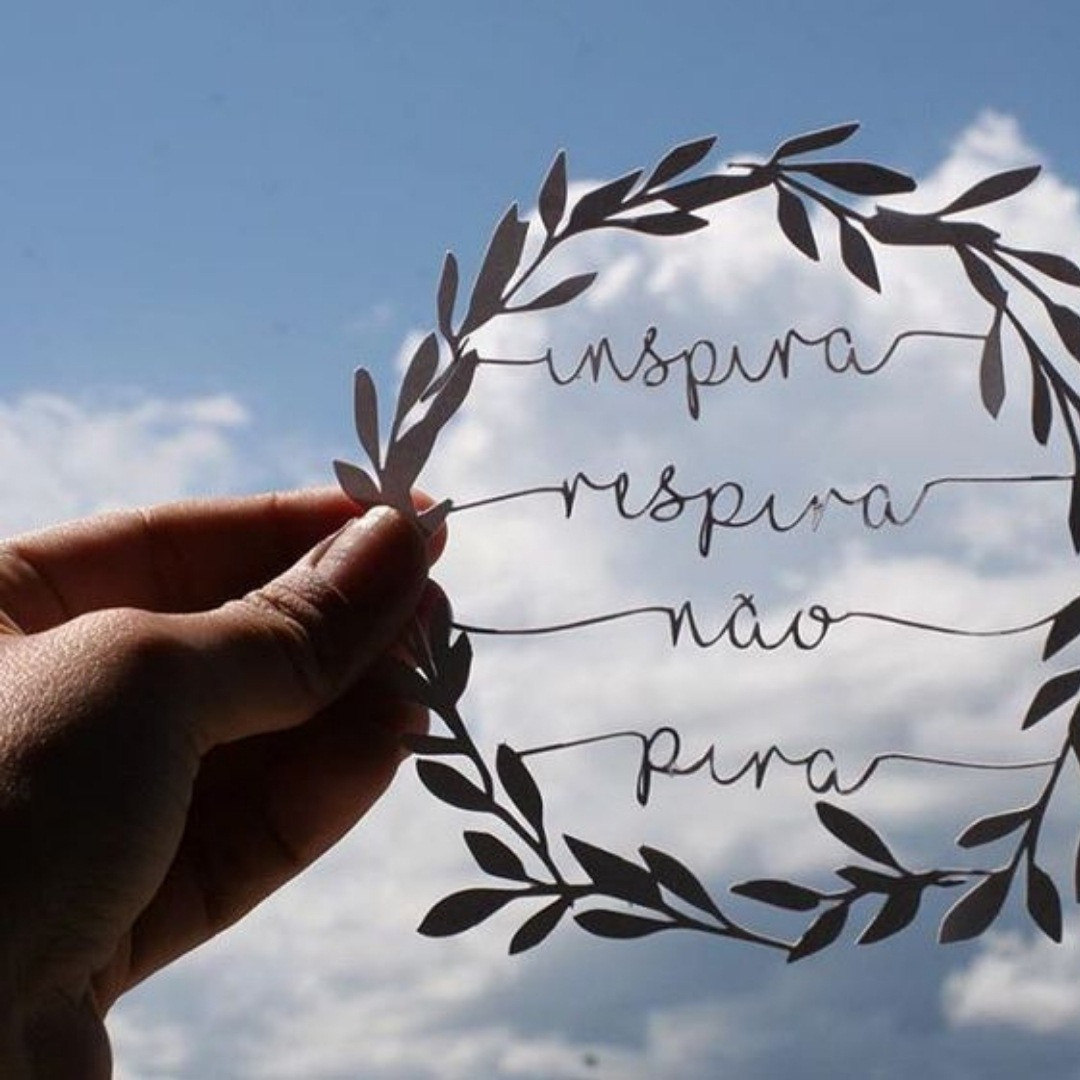 inspira
respira
não
pira